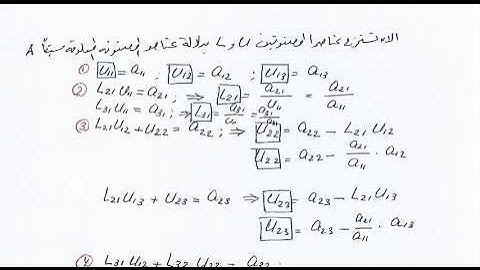 الآن نستنتج عناصر المصفوفتين U و L بدلالة عناصر المصفوفة المعلومة مسبقاً A
① U11 = a11 ; U12 = a12 ; U13 = a13
② L21 U11 = a21 ; ⇒ L21 = a21/U11 = a21/a11
L31 U11 = a31 ; ⇒ L31 = a31/U11 = a31/a11
③ L21 U12 + U22 = a22 ; ⇒ U22 = a22 − L21 U12
U22 = a22 − a21/a11 · a12
L21 U13 + U23 = a23 ⇒ U23 = a23 − L21 U13
U23 = a23 − a21/a11 · a13
④ L31 U12 + L32 U22 = a32 ;